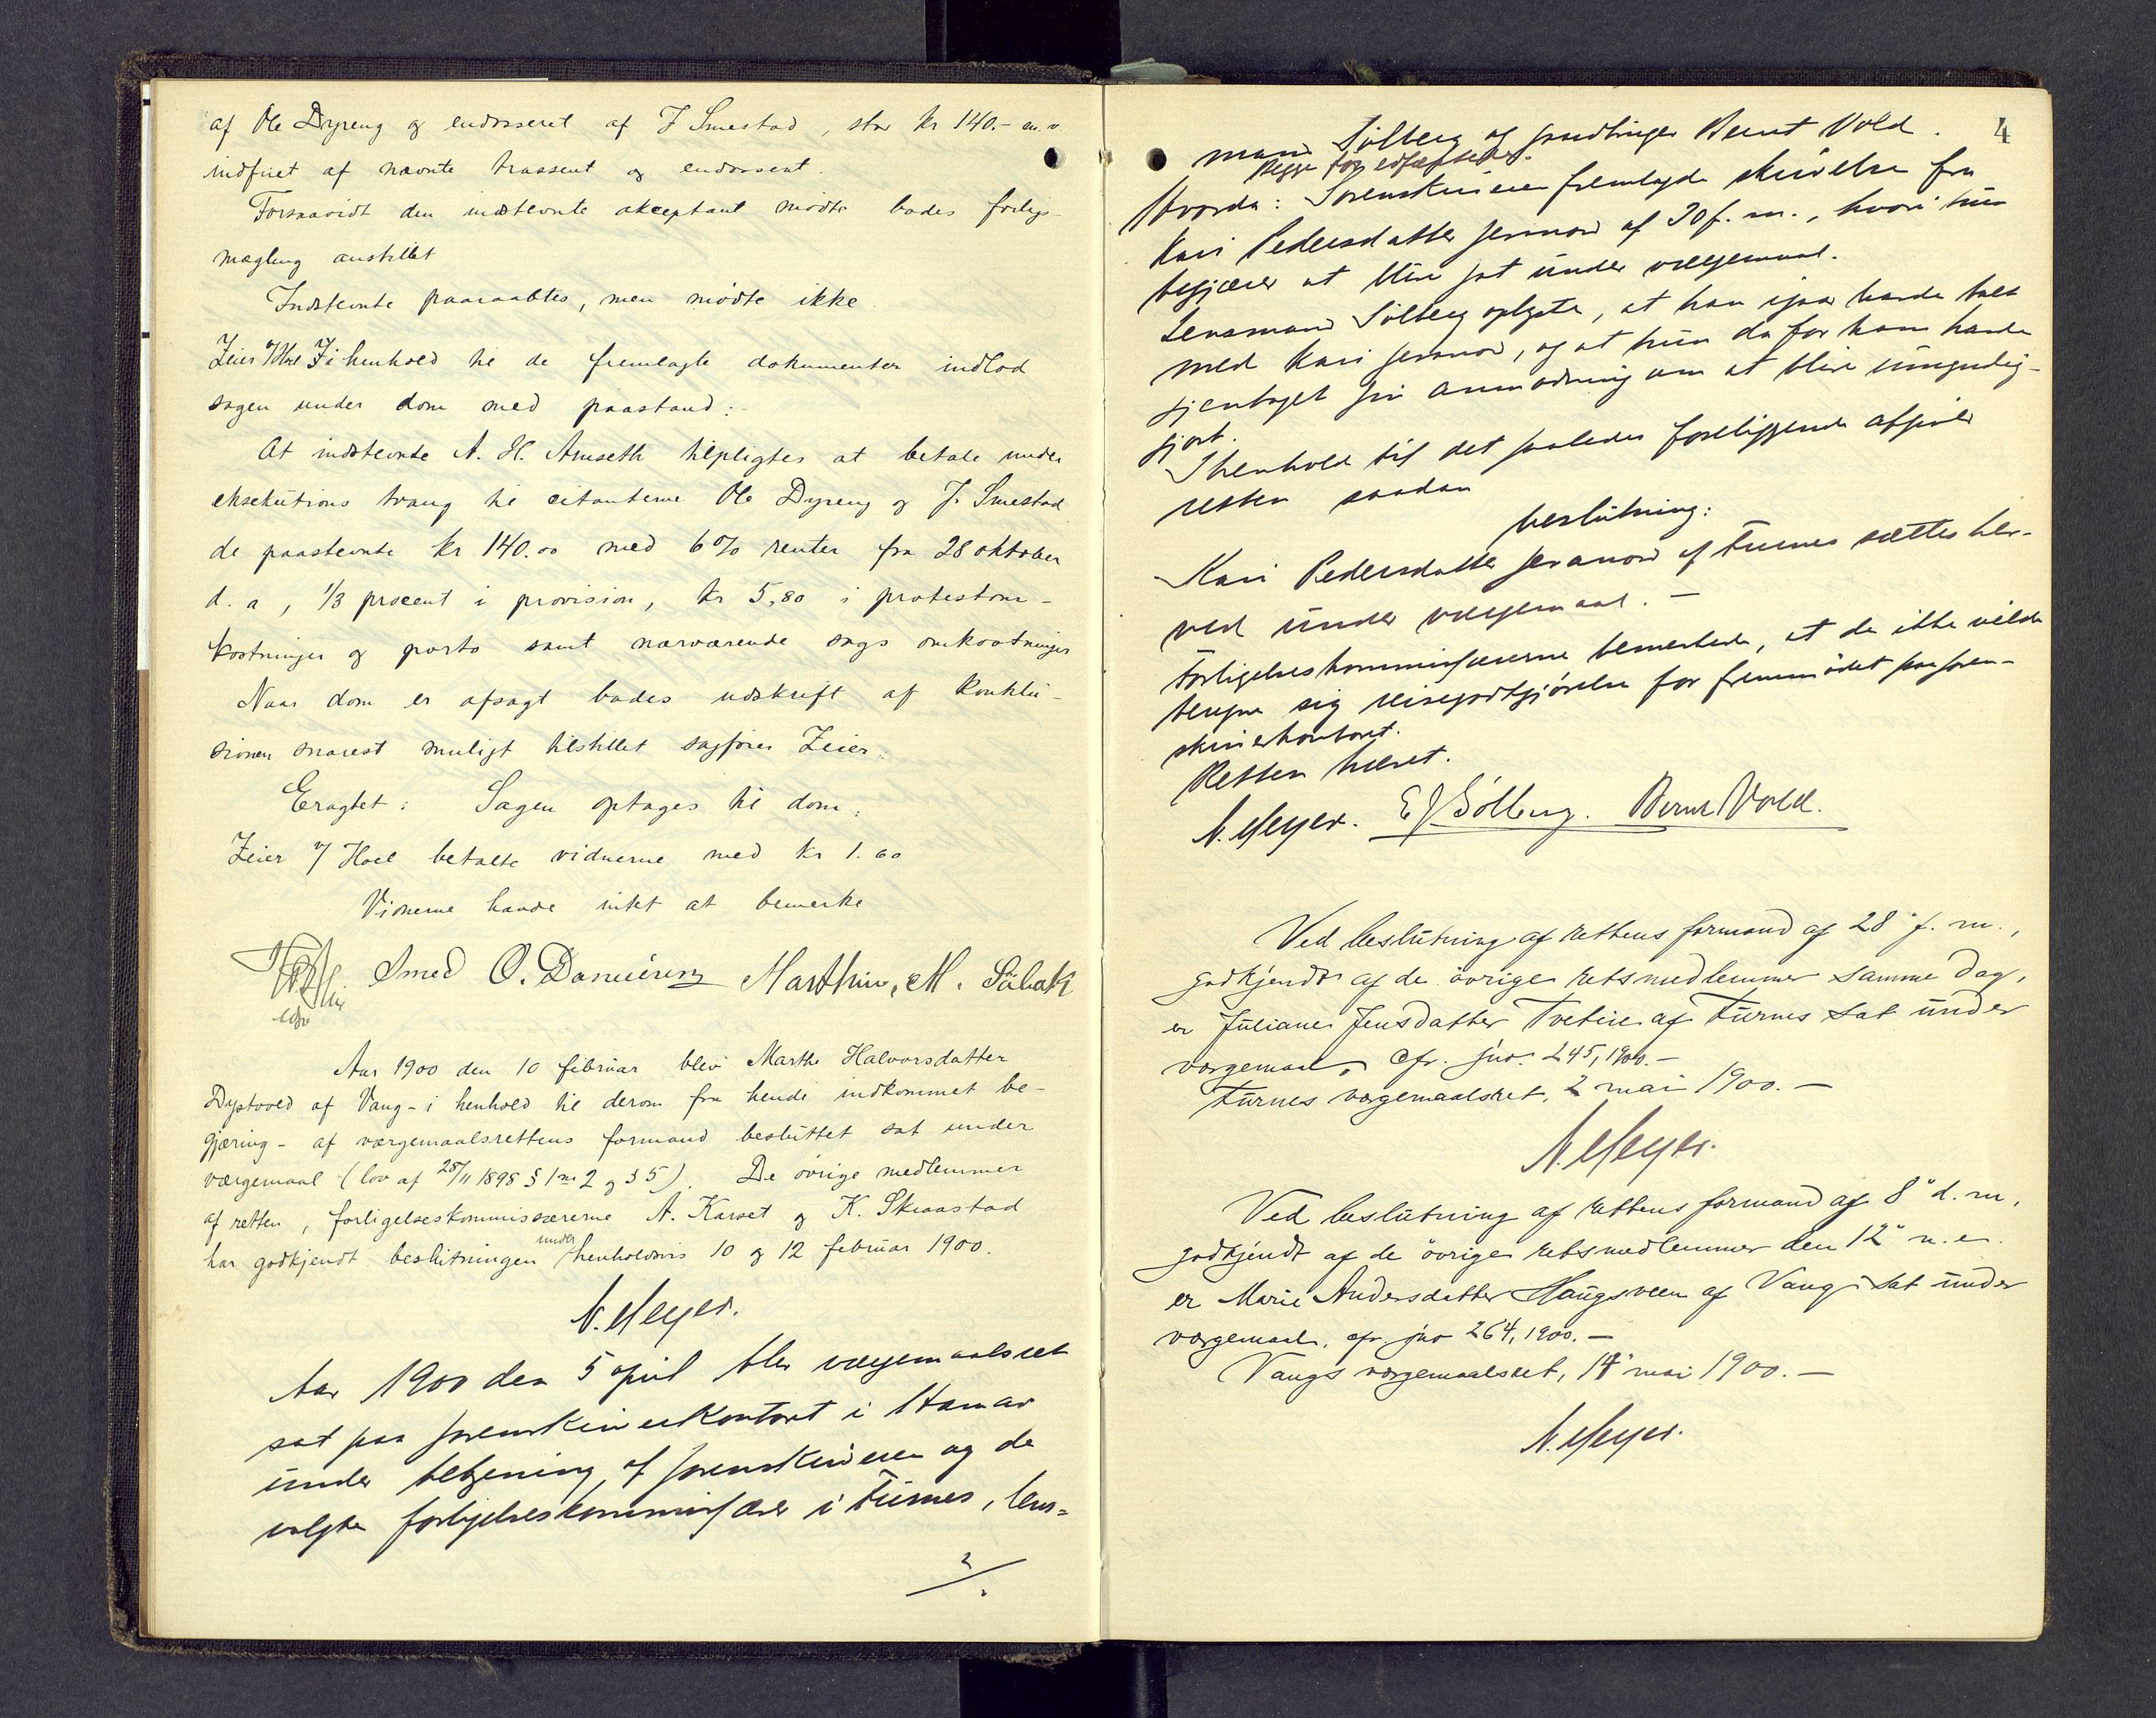 af Ole Dyreng og endosseret af J Smestad, stor kr 140.- m.v.
indfriet af nævnte trassent og endossent.
Forsaavidt den indstevnte akceptant mødte bades forligs-
mægling anstillet
Indstevnte paaraabtes, men mødte ikke
Zeier v/ Hoel I henhold til de fremlagte dokumenter indlod
sagen under dom med paastand:
At indstevnte A. H. Arnseth tilpligtes at betale under
eksekutions tvang til citanterne Ole Dyreng og J. Smestad
de paastevnte kr 140.00 med 6% renter fra 28 oktober
d. a, 1/3 procent i provision, kr 5,80 i protestom-
kostninger og porto samt nærværende sags omkostninger
Naar dom er afsagt bades udskrift af konklu-
sionen snarest muligt tilstillet sagfører Zeier.
Eragtet: Sagen optages til dom.
Zeier v/ Hoel betalte vidnerne med kr 1.60
Vidnerne havde intet at bemerke
Smed O. Marthin. M. Sübak
Aar 1900 den 10 februar blev Marthe Halvorsdatter
af Vang - i henhold til derom fra hende indkommet be-
gjæring - af værgemaalsrettens formand besluttet sat under
værgemaal (lov af 28/11 1898 § 1 no 2 og § 5). De øvrige medlemmer
af retten, forligelseskommissærerne A. Karset og K. Skraastad
har godkjendt beslutningen under henholdsvis 10 og 12 februar 1900.
N. Meyer.
Aar 1900 den 5 april blev værgemaalsret
sat paa sorenskriverkontoret i Hamar
under betjening af sorenskriveren og de
valgte forligelseskommissærer i Furnes, lens-
4
mand Sølberg og gaardbruger Bernt Vold.
Begge før edfæstede.
Hvorda: Sorenskriveren fremlagde skrivelse fra
Kari Pedersdatter Jevanord af 30 f. m., hvori hun
begjærer at blive sat under værgemaal.
Lensmand Sølberg oplyste, at han igaar havde talt
med Kari Jevanord, og at hun da for ham havde
gjentaget sin anmodning om at blive umyndig-
gjort.
I henhold til det saaledes foreliggende afgiver
retten saadan
beslutning:
Kari Pedersdatter Jevanord af Furnes sættes her-
ved under værgemaal. -
Forligelseskommissærerne bemerkede, at de ikke vilde
beregne sig reisegodtgjørelse for fremmødet paa soren-
skriverkontoret.
Retten hævet.
N. Meyer. E J Sölberg. Bernt Vold.
Ved beslutning af rettens formand af 28' f. m.,
godkjendt af de øvrige retsmedlemmer samme dag,
er Juliane Jensdatter af Furnes sat under
værgemaal, cfr. jno. 245, 1900. -
Furnes værgemaalsret, 2 mai 1900. -
N. Meyer.
Ved beslutning af rettens formand af 8' d. m,
godkjendt af de øvrige retsmedlemmer den 12' n. e.
er Marie Andersdatter Haugsveen af Vang sat under
værgemaal, cfr. jno 264, 1900. -
Vangs værgemaalsret, 14' mai 1900. -
N. Meyer.